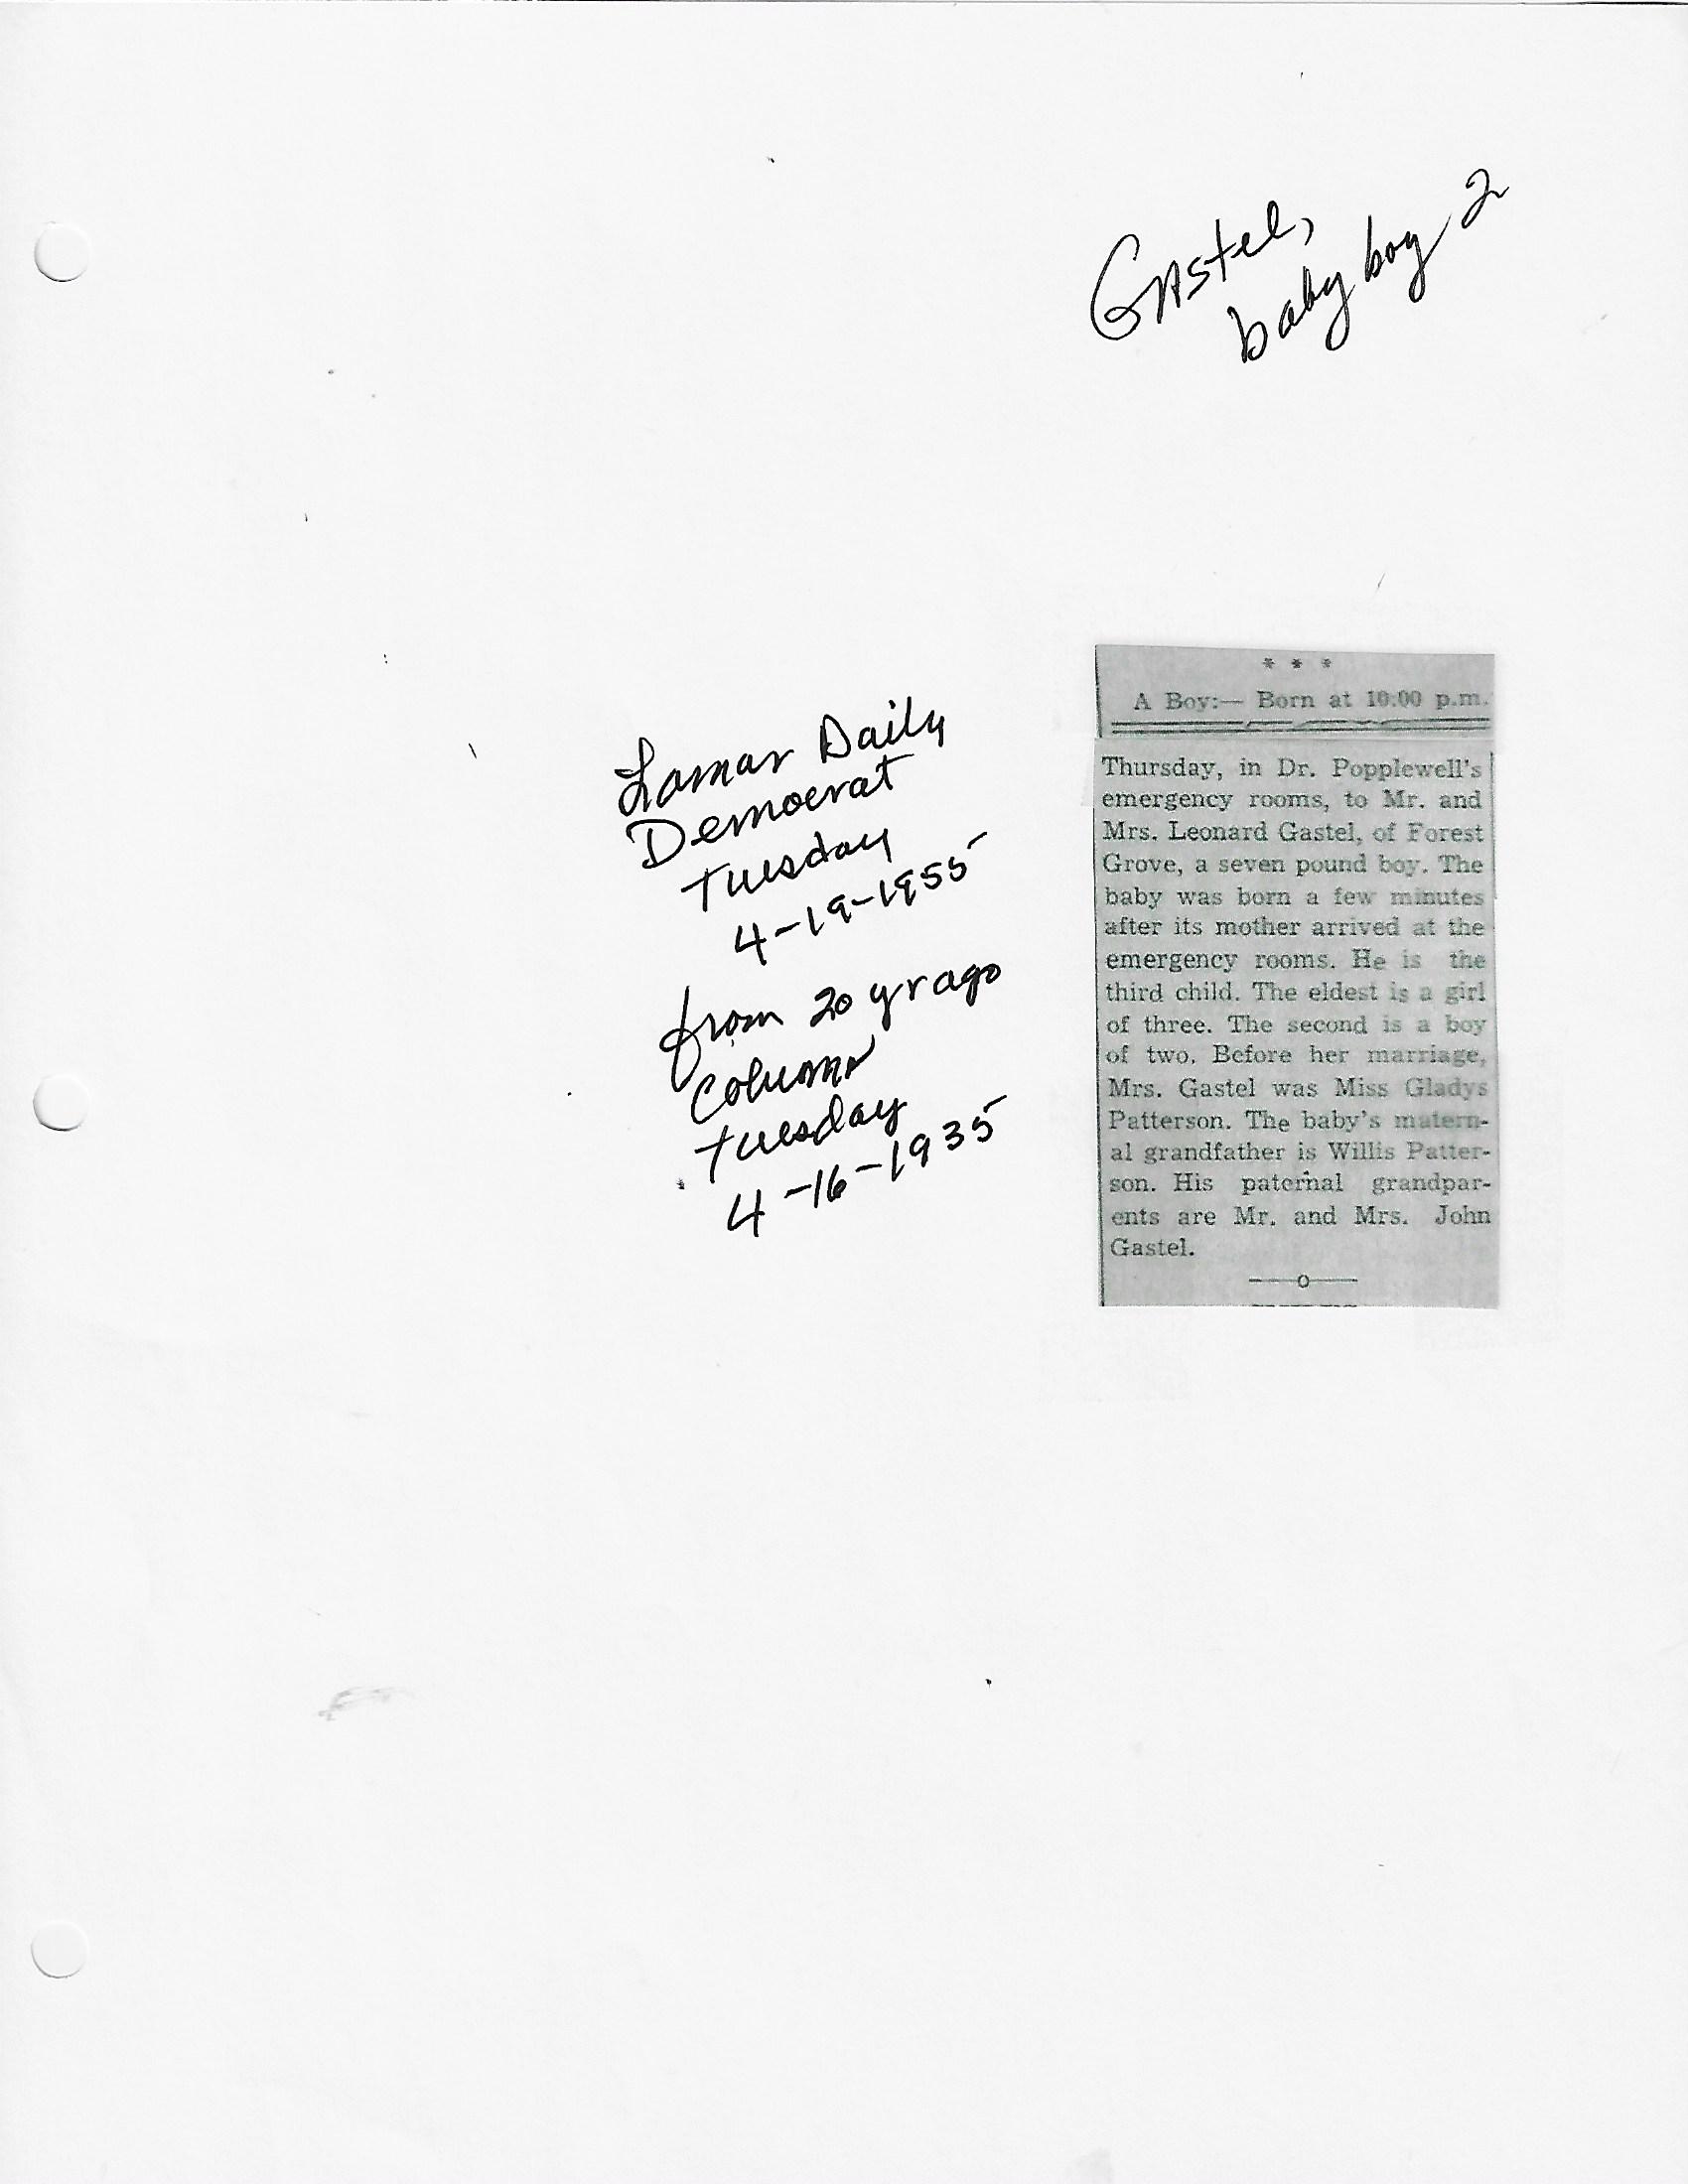 Gastel,
baby boy 2
Lamar Daily
Democrat
Tuesday
4-19-1955
from 20 yr ago
Column
Tuesday
4-16-1935
* * *
A Boy:— Born at 10:00 p.m.
Thursday, in Dr. Popplewell's
emergency rooms, to Mr. and
Mrs. Leonard Gastel, of Forest
Grove, a seven pound boy. The
baby was born a few minutes
after its mother arrived at the
emergency rooms. He is the
third child. The eldest is a girl
of three. The second is a boy
of two. Before her marriage,
Mrs. Gastel was Miss Gladys
Patterson. The baby's matern-
al grandfather is Willis Patter-
son. His paternal grandpar-
ents are Mr. and Mrs. John
Gastel.
—o—